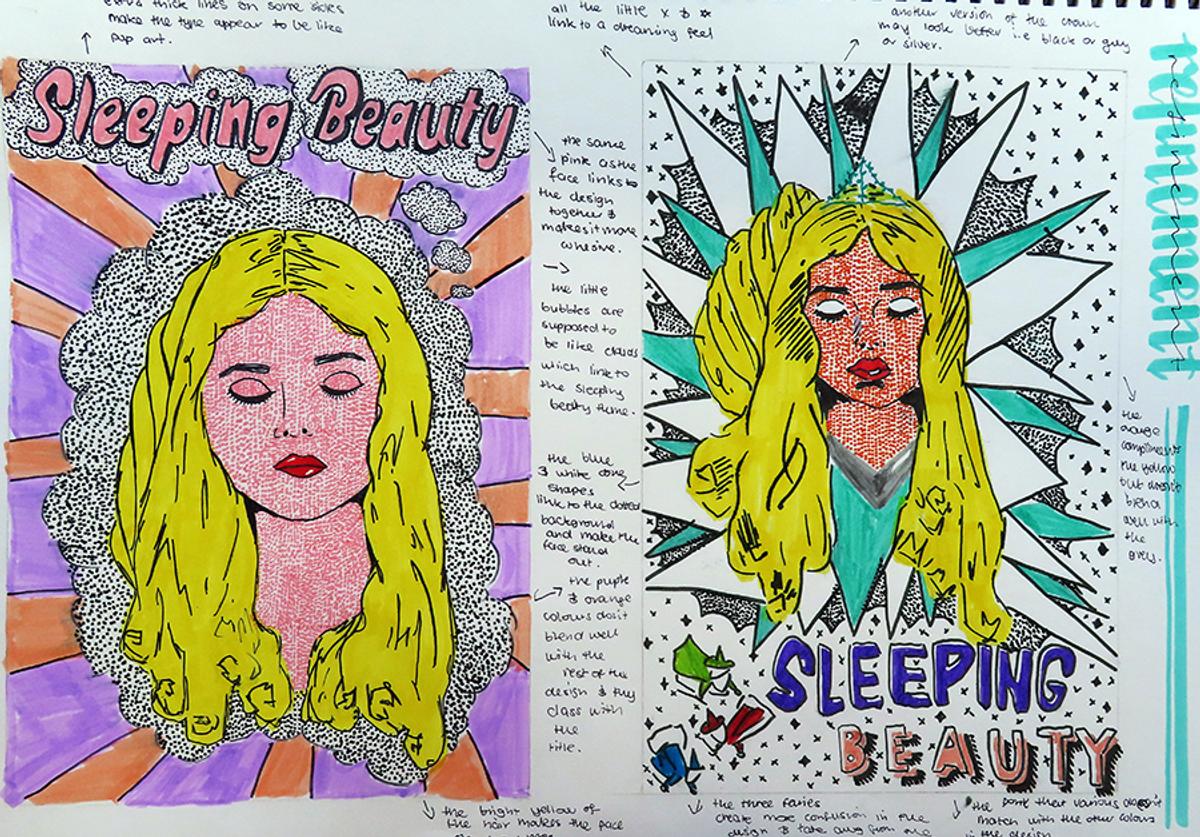 extra thick lines on some sides
make the type appear to be like
pop art.
all the little x
link to a dreaming feel
another version of the crown
may look better i.e black or grey
or silver.
refinement
Sleeping Beauty
the same
pink as the
face links to
the design
together &
makes it more
cohesive.
the little
bubbles are
supposed to
be like clouds
which link to
the sleeping
beauty theme.
the blue
& white cone
shapes
link to the dotted
background
and make the
face stand
out.
the purple
& orange
colours don't
blend well
with the
rest of the
design & they
clash with
the
title.
the
orange
compliments
the yellow
but doesn't
blend
well with
the
grey.
SLEEPING
BEAUTY
the bright yellow of
the hair makes the face
the three fairies
create more confusion in the
design & take away from the
the font that various doesn't
match with the other colours
in the design